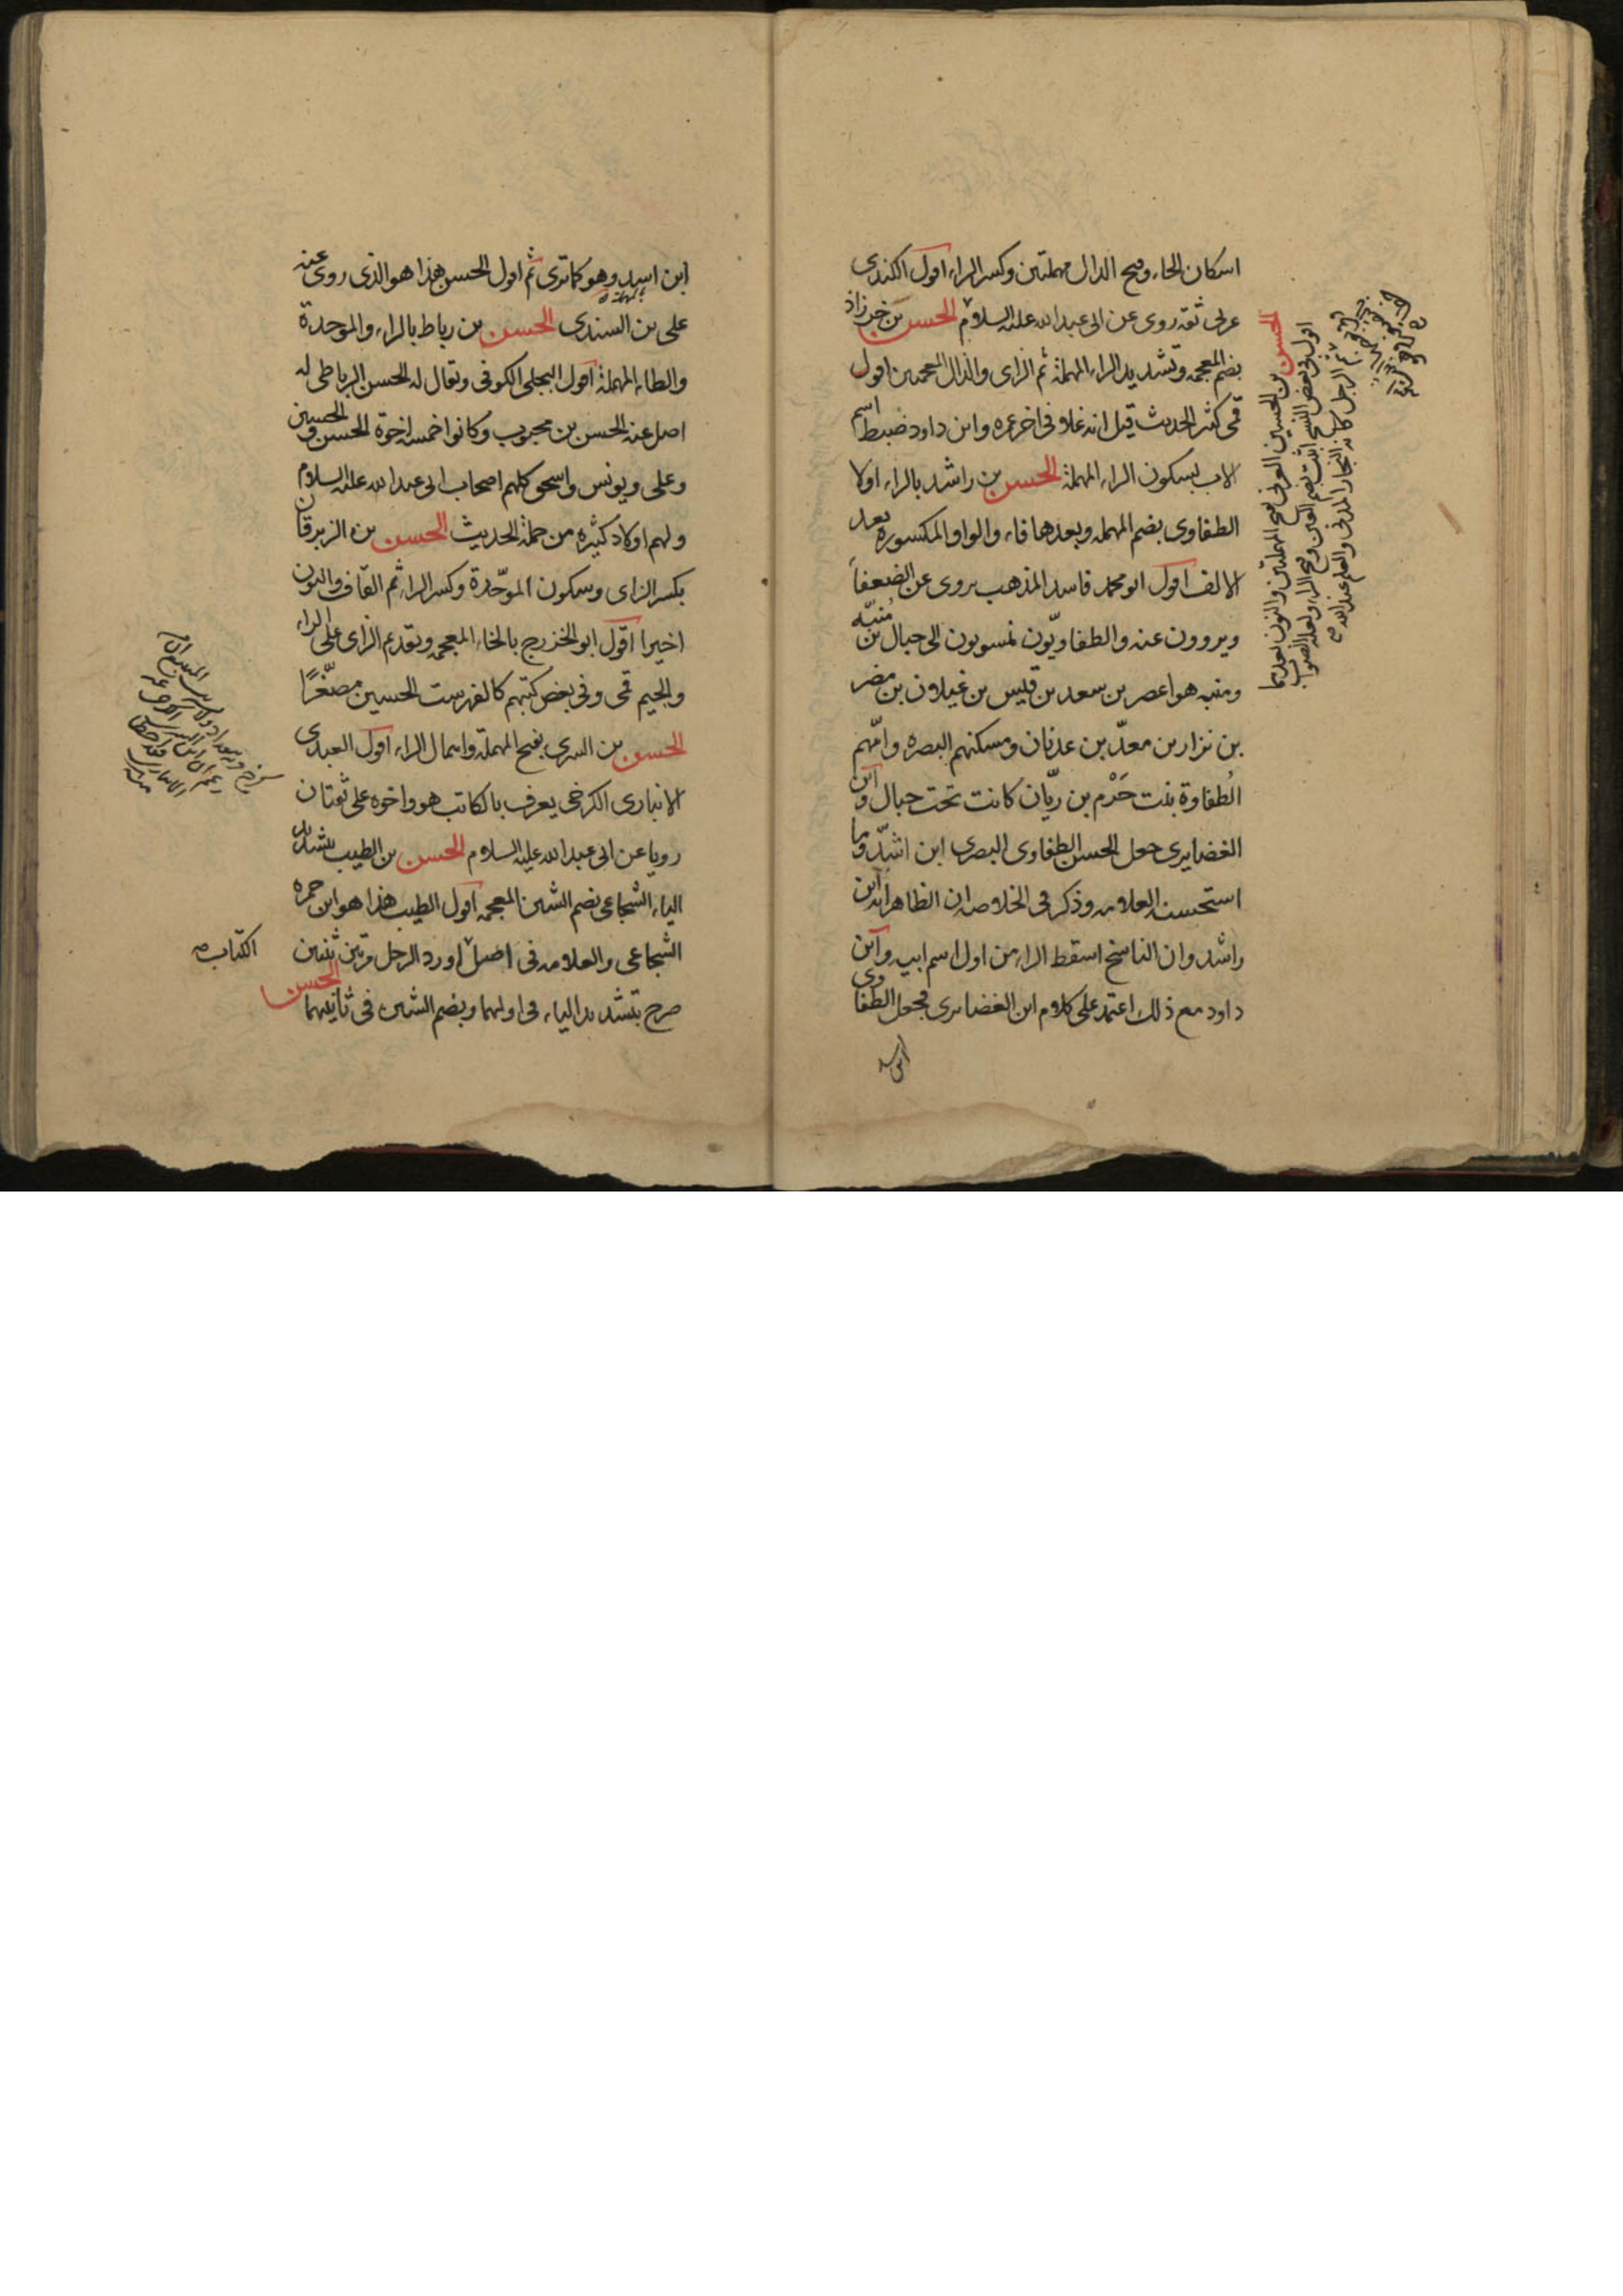 اسكان الحاء وفتح الدال مهملتين وكسر الراء اقول الكندى
عربى ثقه روى عن ابى عبد الله عليه السلام الحسن بن خرزاذ
بضم المعجمه وتشديد الراء المهملة ثم الزاى والذال المعجمتين اقول
قمى كثير الحديث قيل انه غلا فى اخر عمره وابن داود ضبط اسم
الاب بسكون الراء المهملة الحسن بن راشد بالراء اولا
الطفاوى بضم المهمله وبعدها فاء والواو المكسوره بعد
الالف اقول ابو محمد فاسد المذهب يروى عن الضعفاً
ويروون عنه والطفاويّون منسوبون الى حبال بن مُنبّه
ومنبه هو اعصر بن سعد بن قيس بن غيلان بن مضر
بن نزار بن معدّ بن عدنان ومسكنهم البصره وامّهم
الُطفاوة بنت حَرْم بن ريّان كانت تحت حبال وابن
الغضايرى جعل الحسن الطفاوى البصرى ابن اشدّ وما
استحسنه العلامه وذكر فى الخلاصه ان الظاهر انه ابن
راشد وان الناسخ اسقط الراء من اول اسم ابيه وابن
داود مع ذلك اعتمد على كلام ابن الغضايرى فجعل الطفاوى
ابن اسد
الحسن بن الحسين العرنى بفتح المهملتين والنون بعدهما
اقول وفى بعض النسخ اثبت بضم العين وفتح الراء ولعله الصواب
ثم الرجل كانه النجار المدنى والعلم عند الله
ابن اسد وهو كما ترى ثم اقول الحسن هذا هو الذى روى عنه
على بن السندى الحسن بن رباط بالراء والموحدة
والطاء المهملة اقول البجلى الكوفى ويقال له الحسن الرباطى له
اصل عنه الحسن بن محبوب وكانوا خمسه اخوة الحسن والحسين
وعلى ويونس واسحق كلهم اصحاب ابى عبد الله عليه السلام
ولهم اولاد كثيره من حملة الحديث الحسن بن الزبرقان
بكسر الزاى وسكون الموحّدة وكسر الراء ثم القاف والنون
اخيرا اقول ابو الخزرج بالخاء المعجمه وتقدم الزاى على الراء
والجيم قمى وفى بعض كتبهم كالفهرست الحسين مصغّرًا
الحسن بن السرى بفتح المهملة واهمال الراء اقول العبدى
الانبارى الكرخى يعرف بالكاتب هو واخوه على ثقتان
رويا عن ابى عبد الله عليه السلام الحسن بن الطيب بتشديد
الياء الشجاعى بضم الشين المعجمه اقول الطيب هذا هو ابن حمزه
الشجاعى والعلامه فى اصل اورد الرجل مرتين ثنتين
صرح بتشديد الياء فى اولهما وبضم الشين فى ثانيهما الحسن
الكتاب